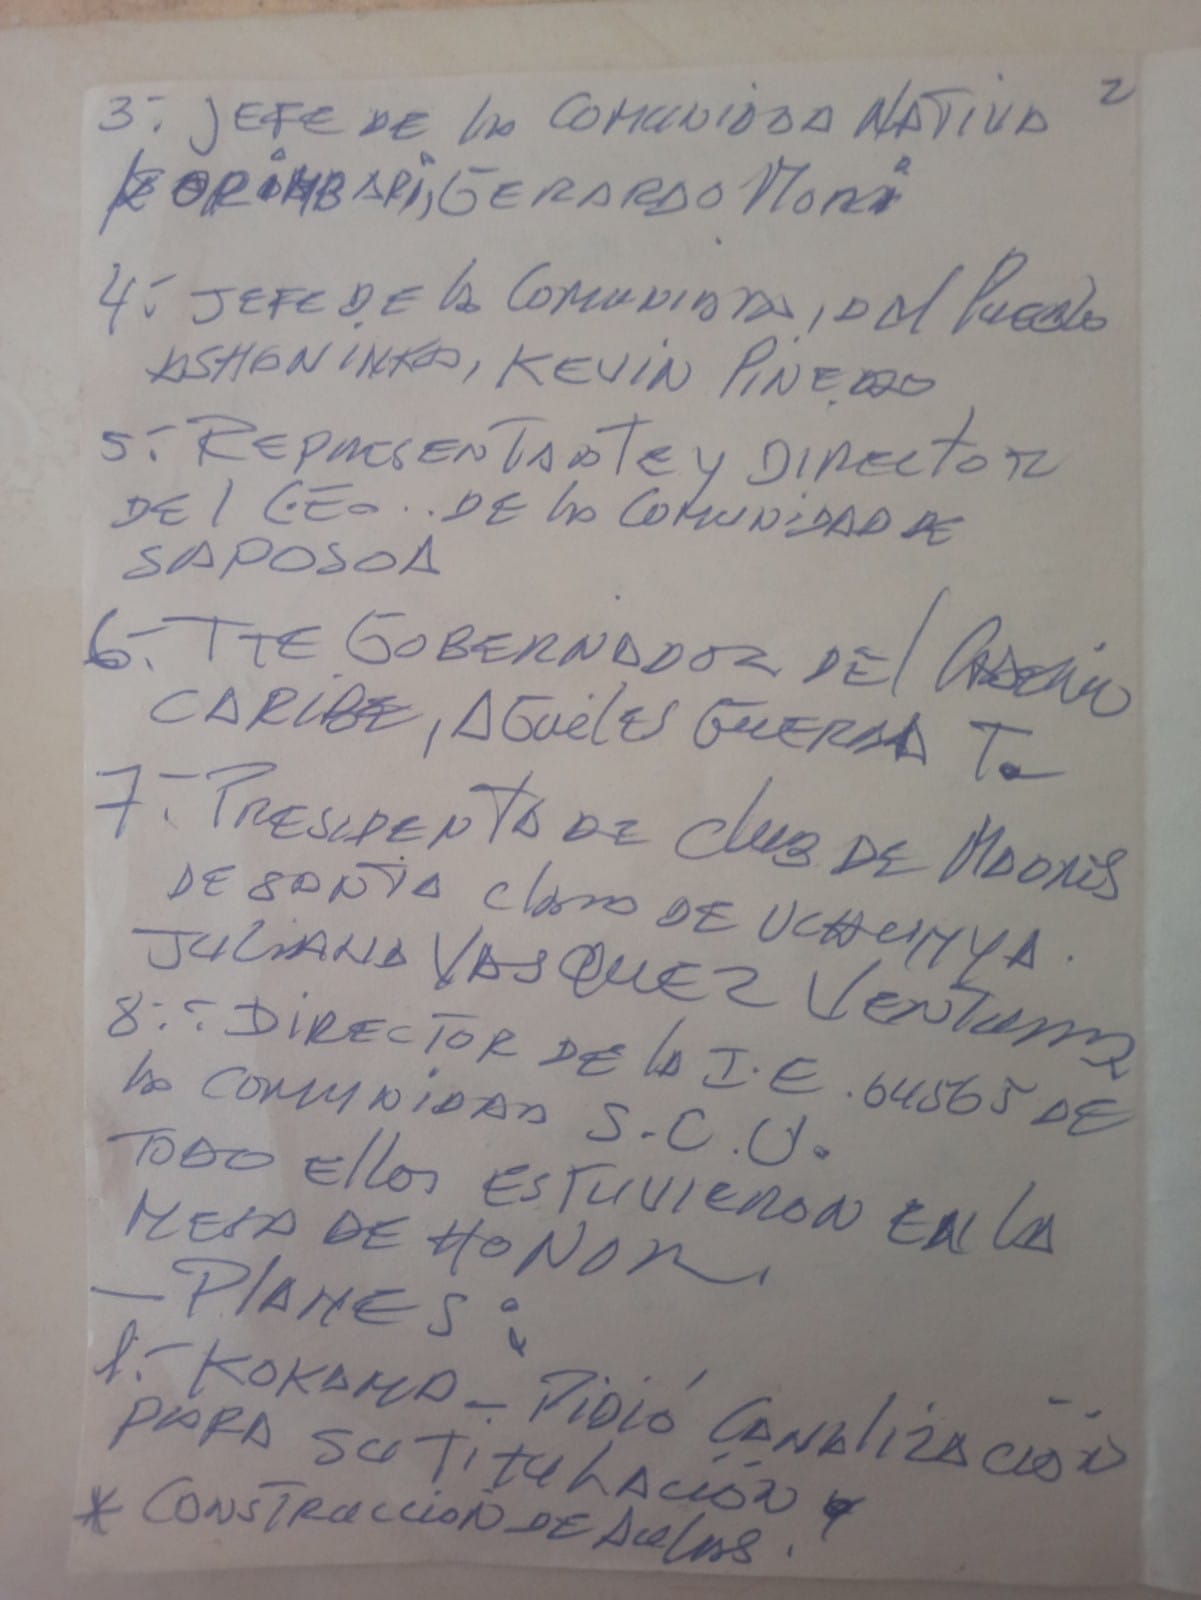 2
3.- JEFE DE la COMUNIDAD NATIVA
KORIMBARI, GERARDO
4.- JEFE DE la COMUNIDAD, DEl PUEBLO
ASHANINKA, KEVIN PINEDO
5.- REPRESENTANTE y DIRECTOR
DEl C.E. .. DE la COMUNIDAD DE
SAPOSOA
6.- TTE GOBERNADOR DEl CASERIO
CARIBE, AGUILES GUERRA T.
7.- PRESIDENTA DE CLUB DE MADRES
DE SANTA Clara DE UCHUNYA.
JULIANA VASQUEZ VENTURA
8.- DIRECTOR DE la I.E. 64565 DE
la COMUNIDAD S.C.U.
TODO Ellos ESTUVIERON EN LA
MESA DE HONOR.
- PLANES:
1.- KOKAMA - PIDIÓ CANALIZACIÓN
PARA SU TITULACIÓN y
* CONSTRUCCION DE AULAS.